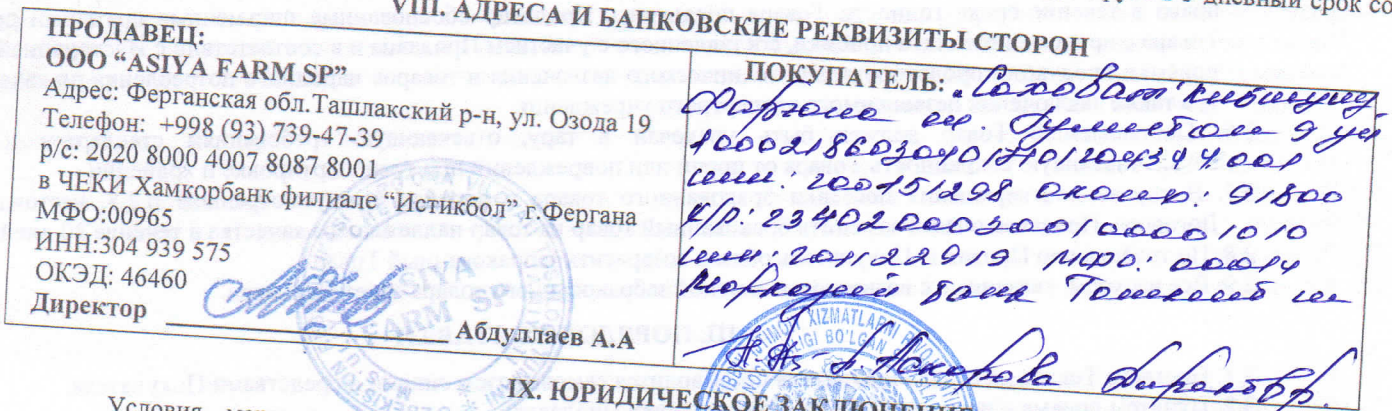 срок со
VIII. АДРЕСА И БАНКОВСКИЕ РЕКВИЗИТЫ СТОРОН
ПРОДАВЕЦ:
ООО “ASIYA FARM SP”
Адрес: Ферганская обл.Ташлакский р-н, ул. Озода 19
Телефон: +998 (93) 739-47-39
р/с: 2020 8000 4007 8087 8001
в ЧЕКИ Хамкорбанк филиале “Истикбол” г.Фергана
МФО:00965
ИНН:304 939 575
ОКЭД: 46460
Директор Абдуллаев А.А
ASIYA
FARM SP
ПОКУПАТЕЛЬ: Саховат
Фаргона ш Гулистон 9 уй
инн: 200151298 оконх: 91800
х/р: 23402000300100001010
инн: 201122919 мфо: 00014
Марказий банк Тошкент ш
Директор.
XIZMATLARNI
BO'LGAN
IX. ЮРИДИЧЕСКОЕ ЗАКЛЮЧЕНИЕ
Условия